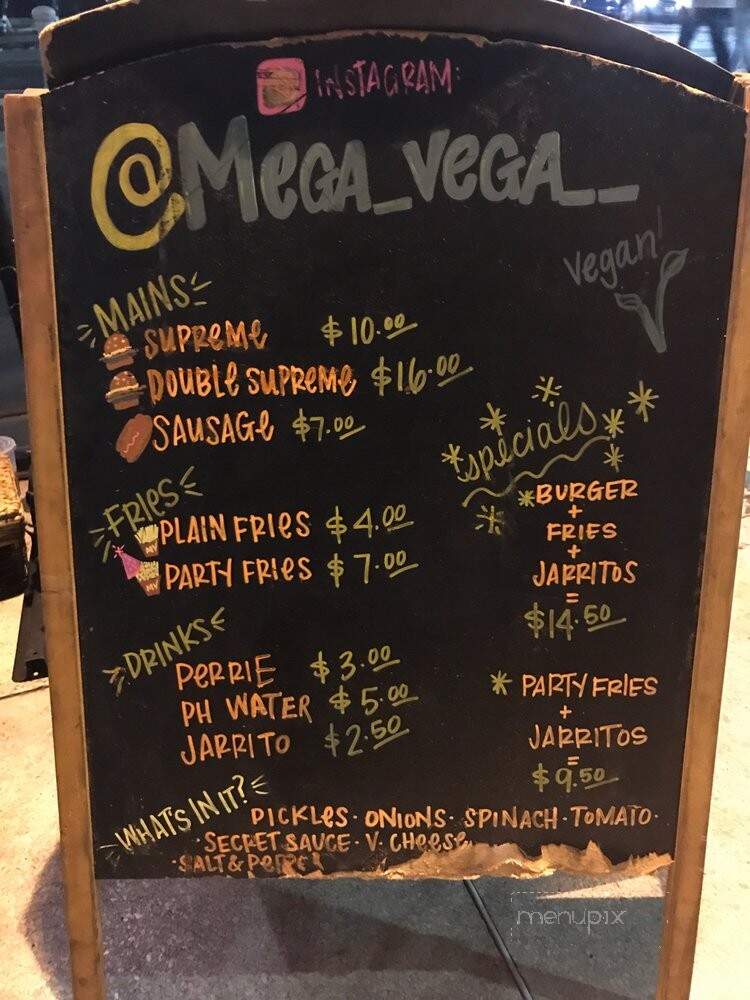 INSTAGRAM:
@MEGA_VEGA__
vegan!
MAINS
SUPREME $10.00
DOUBLE SUPREME $16.00
SAUSAGE $7.00
FRIES
PLAIN FRIES $4.00
PARTY FRIES $7.00
DRINKS
PERRIE $3.00
PH WATER $5.00
JARRITO $2.50
*specials*
*BURGER
+
FRIES
+
JARRITOS
=
$14.50
* PARTY FRIES
+
JARRITOS
=
$9.50
WHAT'S IN IT?
PICKLES · ONIONS · SPINACH · TOMATO ·
SECRET SAUCE · V. CHEESE
· SALT & PEPPER
menupix